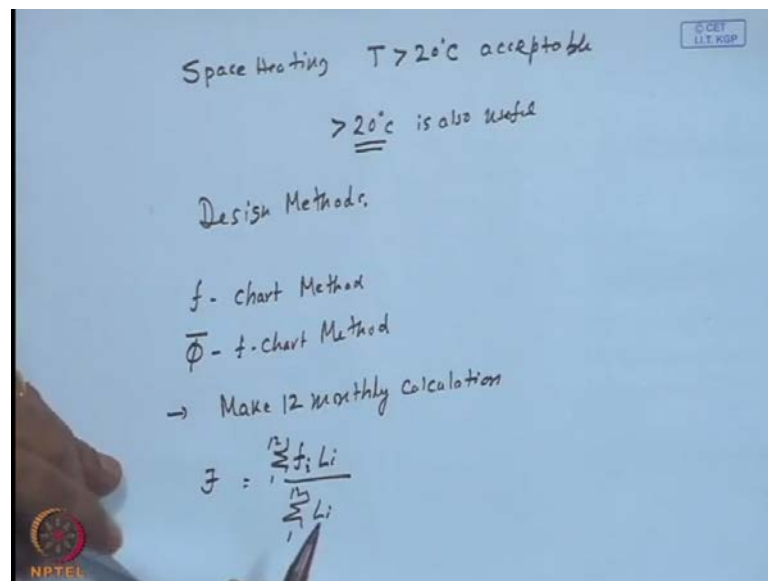 Space Heating T > 20°C acceptable
© CET
I.I.T. KGP
> 20°C is also useful
Design Methods.
f - chart Method
Φ̅ - f-chart Method
→ Make 12 monthly calculation
F = Σ₁¹² fᵢ Lᵢ / Σ₁¹² Lᵢ
NPTEL